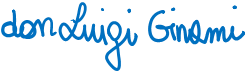 don Luigi Ginami